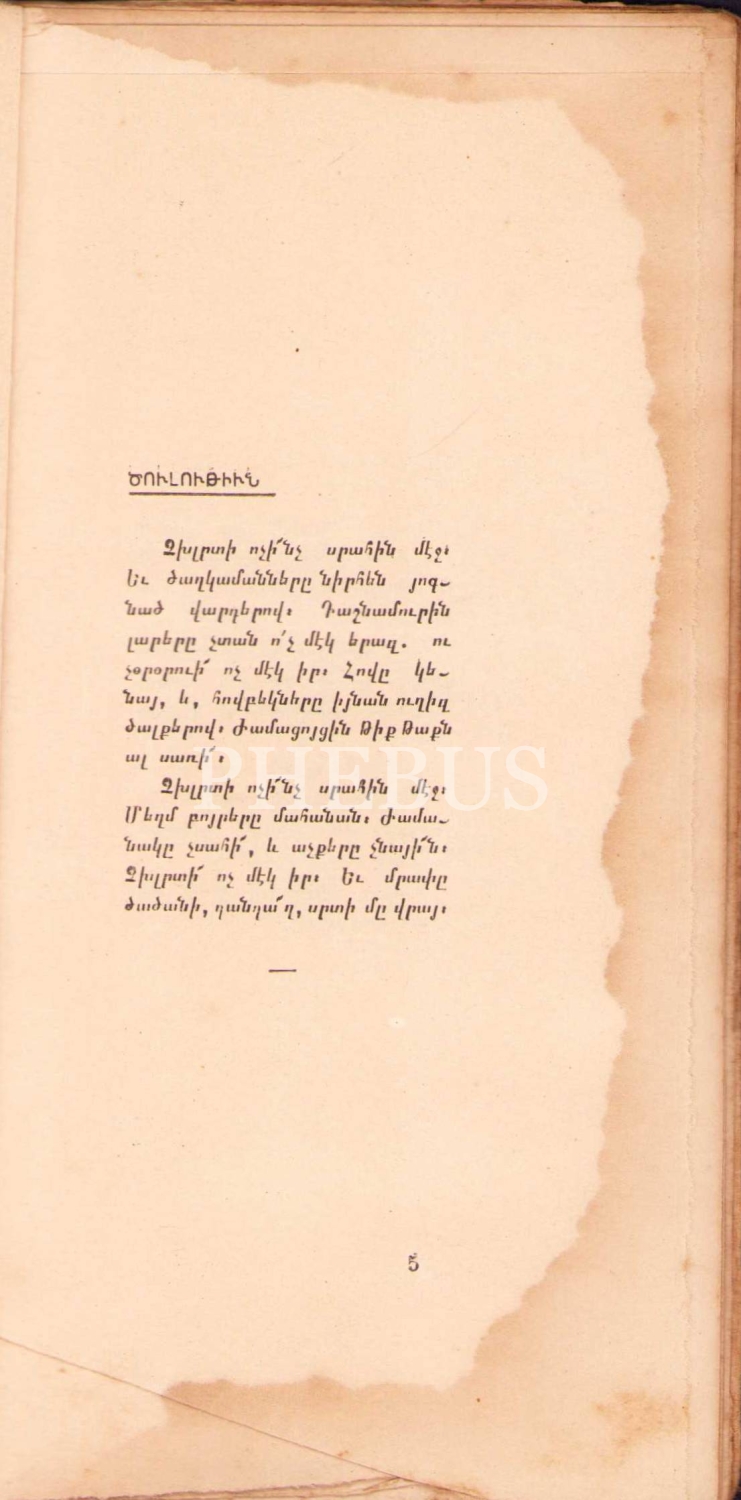 ԾՈՒԼՈՒԹԻՒՆ
Չխլրտի ոչի՜նչ սրահին մէջ։
Եւ ծաղկամանները նիրհեն յոգ–
նած վարդերով։ Դաշնամուրին
լարերը չտան ո՛չ մէկ երազ. ու
չօրօրուի՜ ոչ մէկ իր։ Հովը կե–
նայ, և, հովբեկները իյնան ուղիղ
ծալքերով։ Ժամացոյցին Թիք Թաքն
ալ սառի՜։
Չխլրտի ոչի՜նչ սրահին մէջ։
Մեղմ բոյրերը մահանան։ Ժամա–
նակը չսահի՜, և աչքերը չնայի՜ն։
Չխլրտի՜ ոչ մէկ իր։ Եւ մրափը
ծածանի, դանդա՜ղ, սրտի մը վրայ։
5
PHEBUS